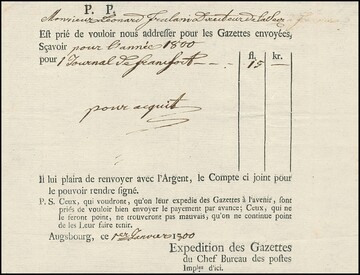 P. P.
Monsieur Leonard
Est prié de vouloir nous addresser pour les Gazettes envoyées,
Sçavoir pour l'année 1800
fl. kr.
pour 1 Journal de francfort 15
pour acquit
Il lui plaira de renvoyer avec l'Argent, le Compte ci joint pour
le pouvoir rendre signé.
P. S. Ceux, qui voudront, qu'on leur expedie des Gazettes à l'avenir, sont
priés de vouloir bien envoyer le payement par avance; Ceux, qui ne
le feront point, ne trouveront pas mauvais, qu'on ne continue point
de Leur faire tenir.
Augsbourg, ce 1er Janvier 1800
Expedition des Gazettes
du Chef Bureau des postes
Imp. d'ici.